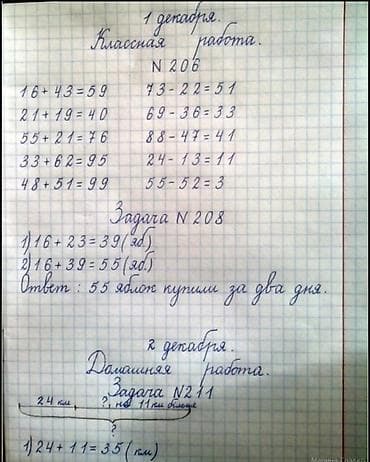 1 декабря.
Классная работа.
N 206
16+43=59 73-22=51
21+19=40 69-36=33
55+21=76 88-47=41
33+62=95 24-13=11
48+51=99 55-52=3
Задача N 208
1) 16+23=39 (яб)
2) 16+39=55 (яб.)
Ответ: 55 яблок купили за два дня.
2 декабря.
Домашняя работа.
Задача N 211
24 км ?, на 11 км больше
?
1) 24+11=35 (км)